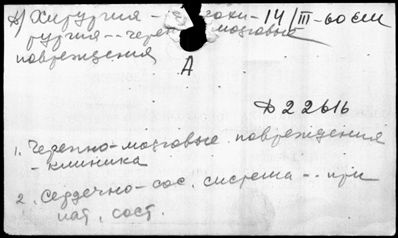 А) Хирургия - - 14/III-60
рургия -- черепно мозговые
повреждения
А
Д 22616
1. Черепно-мозговые повреждения
- клиника
2. Сердечно-сос. система -- при
пат. сост.